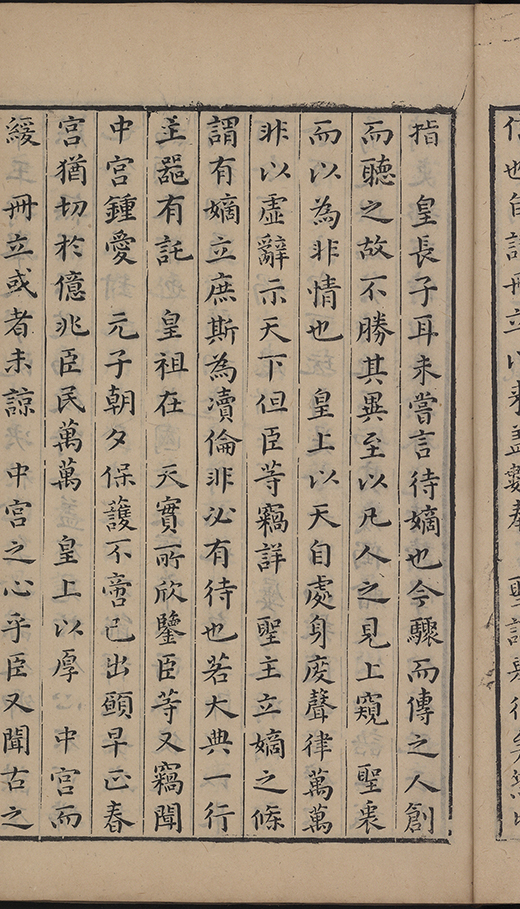 也自詔冊立以來蓋數奉 聖
指 皇長子耳未嘗言待嫡也今驟而傳之人創
而聽之故不勝其異至以凡人之見上窺 聖衷
而以為非情也 皇上以天自處身度聲律萬萬
非以虛辭示天下但臣等竊詳 聖主立嫡之條
謂有嫡立庶斯為瀆倫非必有待也若大典一行
主噐有託 皇祖在 天實所欣鑒臣等又竊聞
中宮鍾愛 元子朝夕保護不啻己出願早正春
宮猶切於億兆臣民萬萬 皇上以厚 中宮而
緩 冊立或者未諒 中宮之心乎臣又聞古之